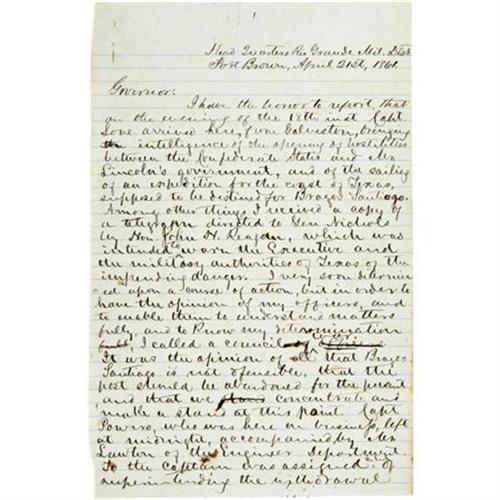 Head Quarters Rio Grande Mil. Dist.
Fort Brown, April 21st, 1861.
Governor:
I have the honor to report, that
on the evening of the 18th inst Capt
Love arrived here, from Galveston, bringing
intelligence of the opening of hostilities
between the Confederate States and Mr
Lincoln's government, and of the sailing
of an expedition for the coast of Texas,
supposed to be destined for Brazos Santiago.
Among other things I received a copy of
a telegram directed to Gen Nichols
by Hon. John H. Reagan, which was
intended to warn the Executive and
the military authorities of Texas of the
impending danger. I very soon determin
ed upon a course of action, but in order to
have the opinion of my officers, and
to enable them to understand matters
fully, and to know my determination
I called a council
It was the opinion of all that Brazos
Santiago is not defensible, that the
post should be abandoned for the present
and that we concentrate and
make a stand at this point. Capt
Powers, who was here on business, left
at midnight, accompanied by Mr
Lawton of the Engineer Department.
To the captain was assigned
superintending the withdrawal